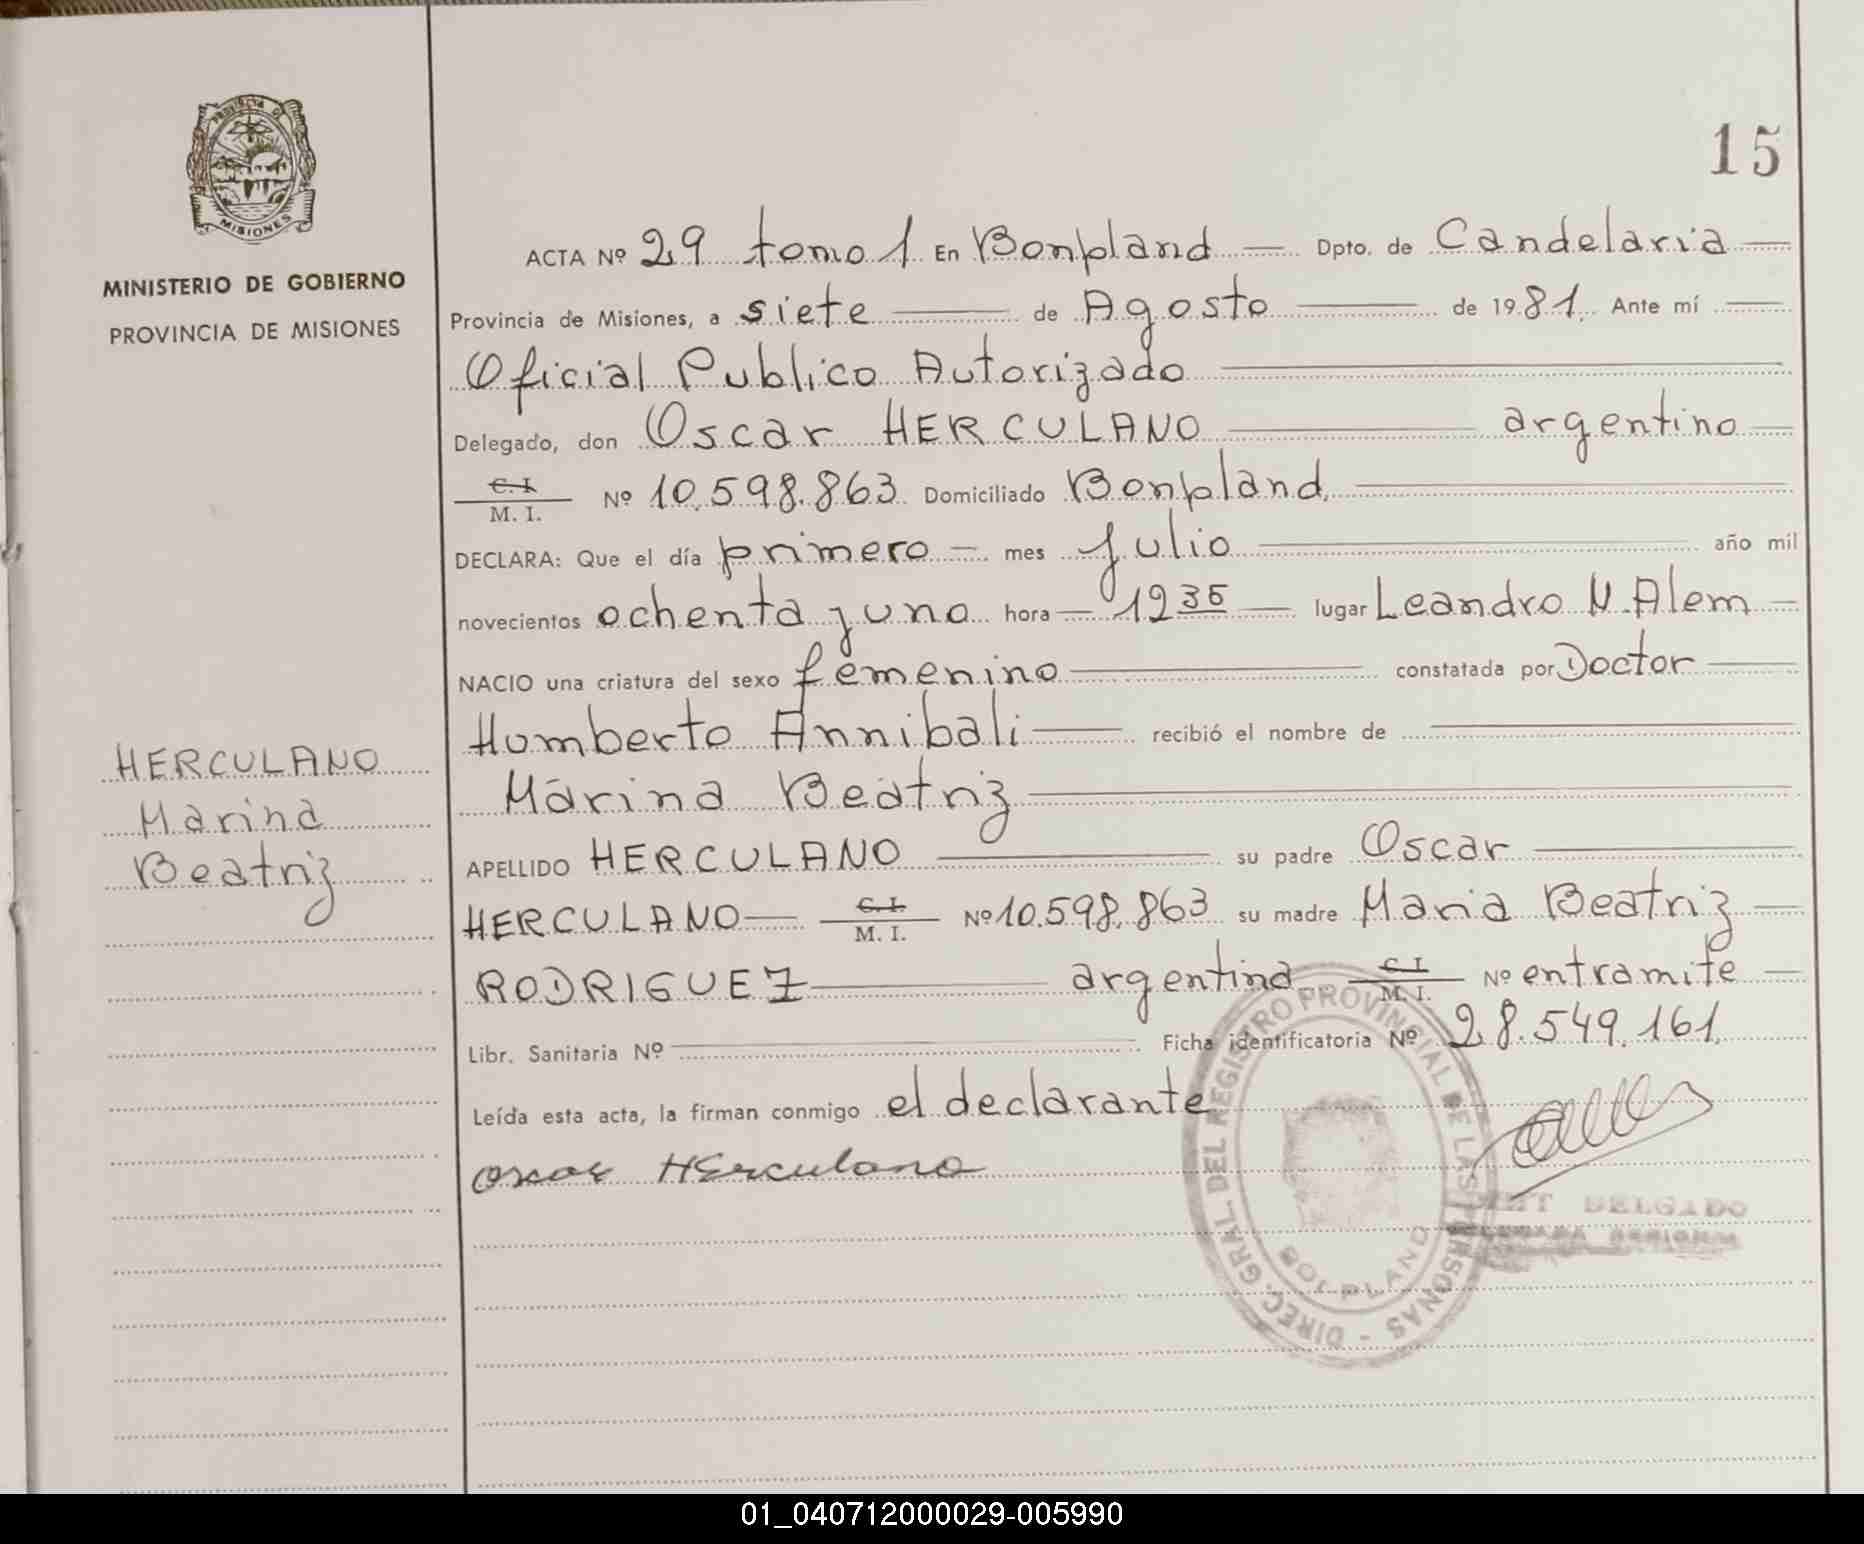 15
PROVINCIA DE
MISIONES
MINISTERIO DE GOBIERNO
PROVINCIA DE MISIONES
ACTA Nº 29 tomo 1 En Bonpland — Dpto. de Candelaria —
Provincia de Misiones, a siete — de Agosto — de 1981. Ante mí —
Oficial Publico Autorizado —
Delegado, don Oscar HERCULANO — argentino —
C. I.
M. I. Nº 10.598.863 Domiciliado Bonpland, —
DECLARA: Que el día primero — mes Julio — año mil
novecientos ochenta y uno hora — 12 35 — lugar Leandro N. Alem —
NACIO una criatura del sexo femenino — constatada por Doctor —
Humberto Annibali — recibió el nombre de —
Marina Beatriz —
APELLIDO HERCULANO — su padre Oscar —
HERCULANO — C. I.
M. I. Nº 10.598.863 su madre Maria Beatriz —
RODRIGUEZ — argentina C. I.
M. I. Nº entramite —
Libr. Sanitaria Nº — Ficha identificatoria Nº 28.549.161.
Leída esta acta, la firman conmigo el declarante
Oscar Herculano
HERCULANO
Marina
Beatriz
DIREC. GRAL. DEL REGISTRO PROVINCIAL DE LAS PERSONAS -
BONPLAND
DELGADO
01_040712000029-005990